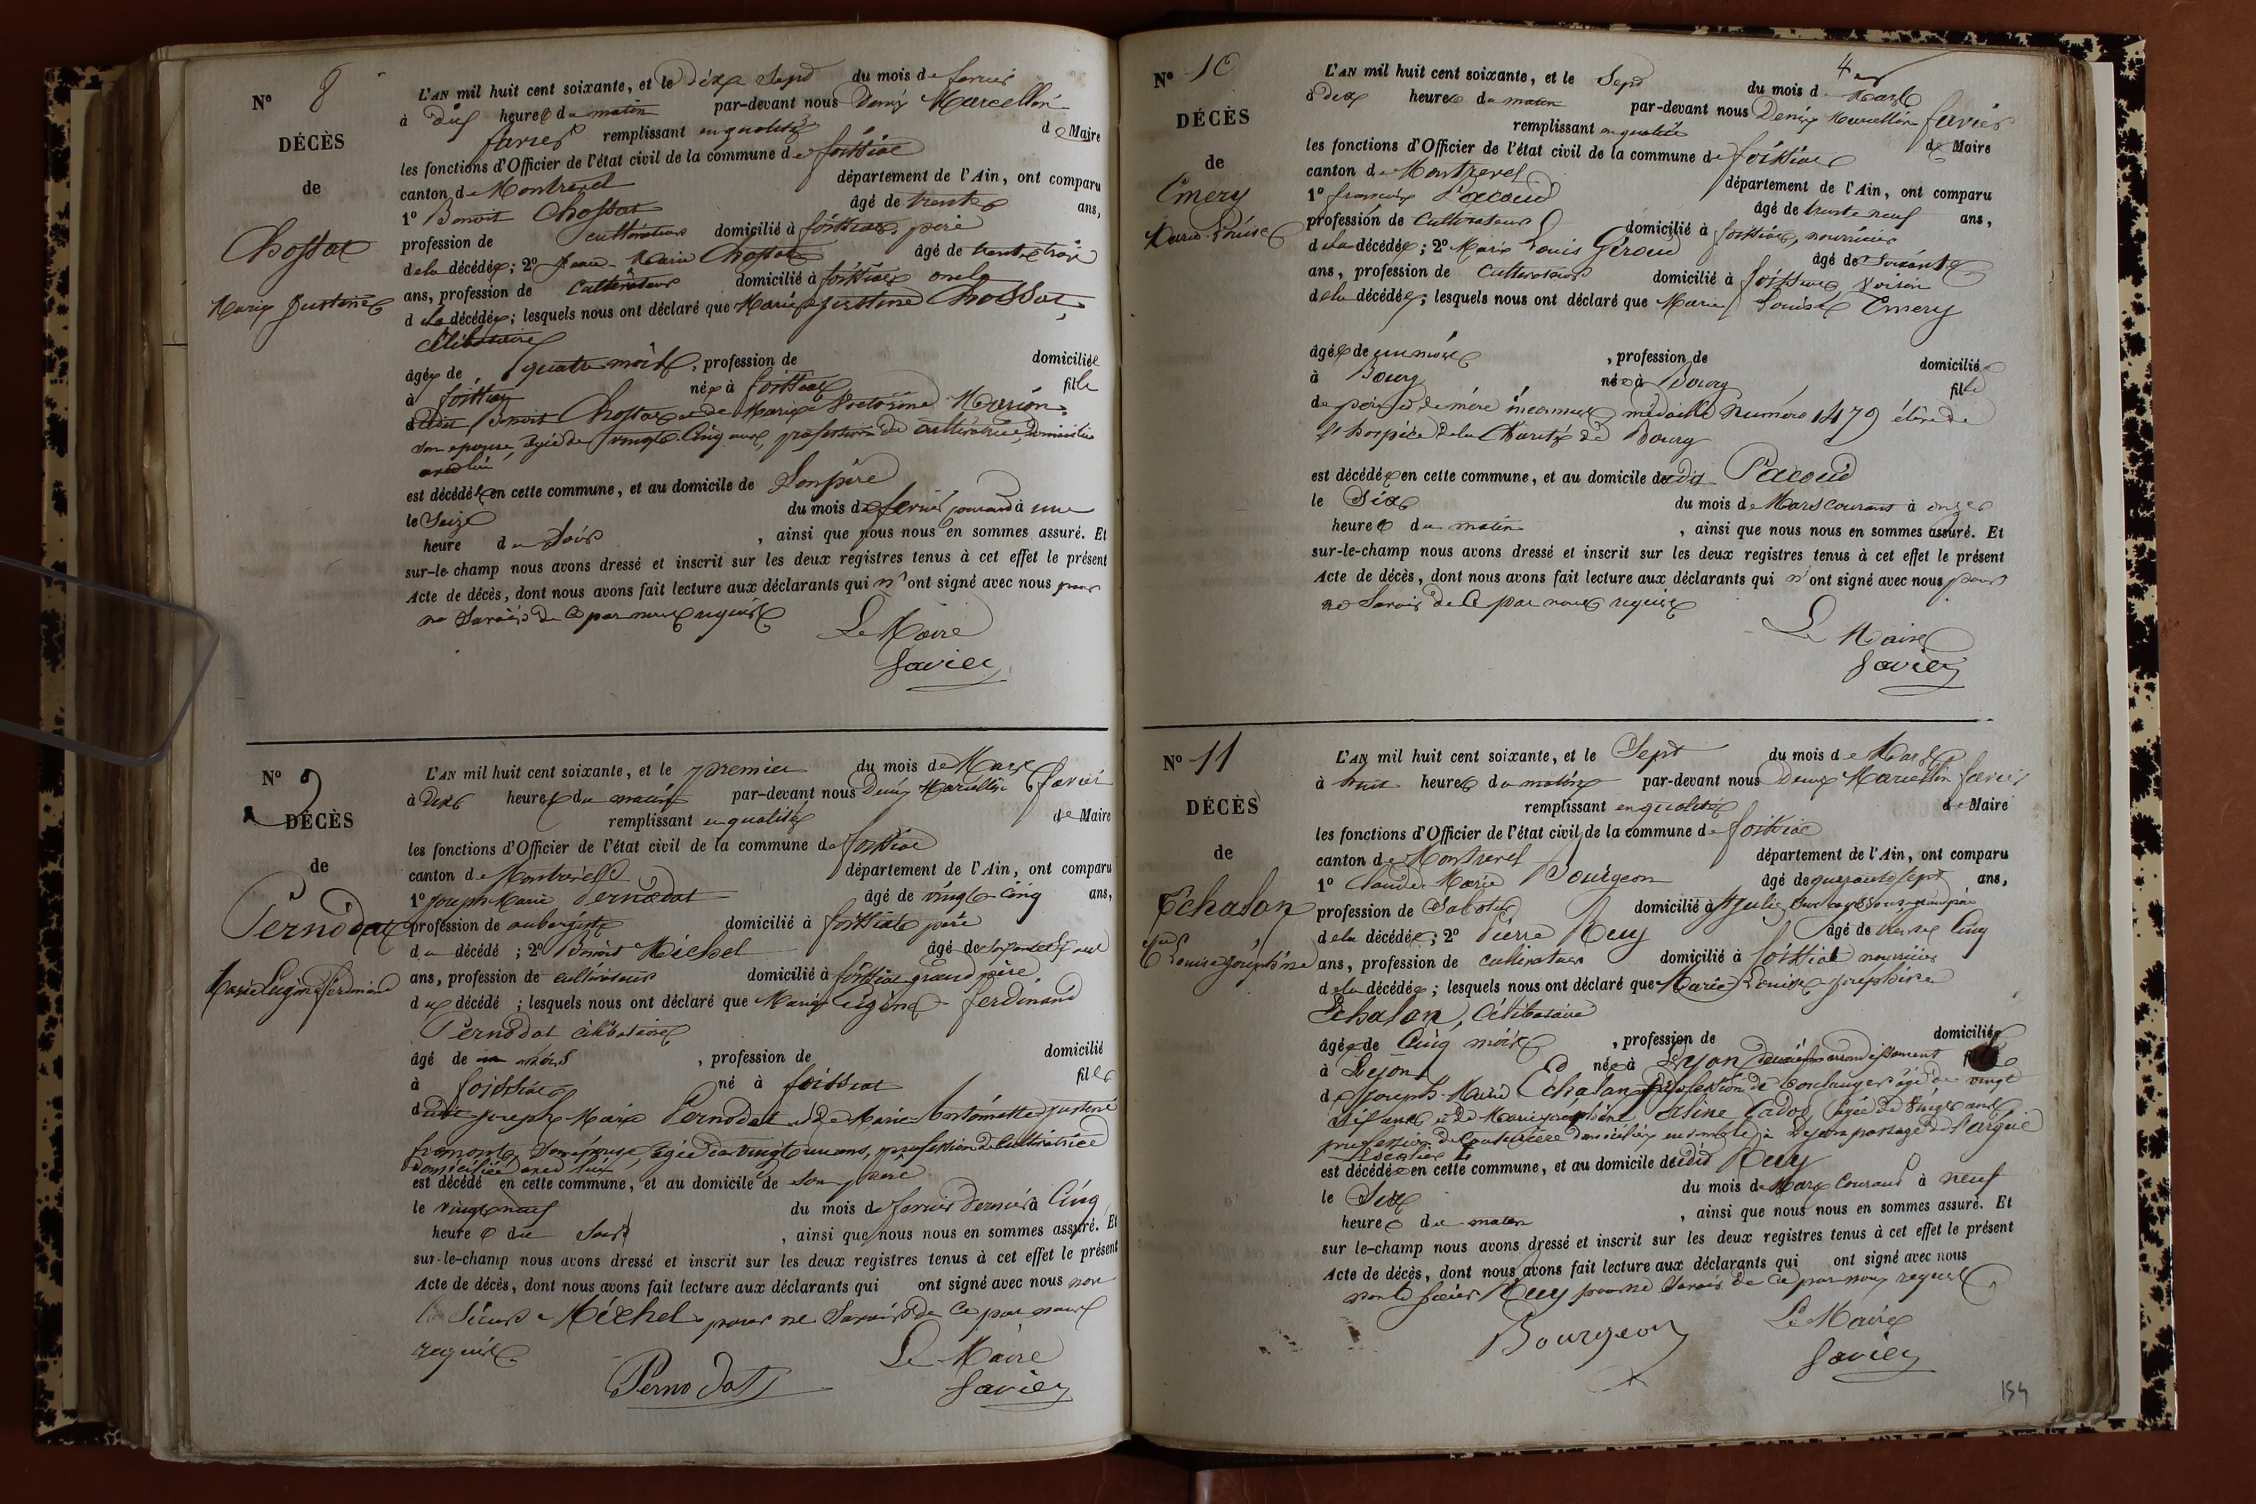 N° 8
DÉCÈS
de
Chossat
Marie Justine
L'AN mil huit cent soixante, et le dix Sept du mois de fevrier
à dix heures du matin par-devant nous Denis Marcellin
favier remplissant en qualité de Maire
les fonctions d'Officier de l'état civil de la commune de foissiat
canton de Montrevel département de l'Ain, ont comparu
1° Benoit Chossat âgé de trente ans,
profession de cultivateur domicilié à foissiat, père
de la décédée; 2° Jean-Marie Chossat âgé de trente trois
ans, profession de Cultivateur domicilié à foissiat oncle
de la décédée; lesquels nous ont déclaré que Marie justine Chossat,
Célibataire
âgée de quatre mois, profession de domiciliée
à foissiat née à foissiat fille
dudit Benoit Chossat et de Marie Victorine Marion
son epouse, agée de vingt Cinq ans, profession de cultivatrice, domiciliée
avec lui
est décédée en cette commune, et au domicile de Son père
le Seize du mois de fevrier courant à une
heure du Soir, ainsi que nous nous en sommes assuré. Et
sur-le-champ nous avons dressé et inscrit sur les deux registres tenus à cet effet le présent
Acte de décès, dont nous avons fait lecture aux déclarants qui n'ont signé avec nous pour
ne Savoir de Ce par nous requis
Le Maire
favier
N° 9
DÉCÈS
de
Pernodat
Marie Eugène Ferdinand
L'AN mil huit cent soixante, et le premier du mois de Mars
à dix heures du matin par-devant nous Denis Marcellin favier
remplissant en qualité de Maire
les fonctions d'Officier de l'état civil de la commune de foissiat
canton de Montrevel département de l'Ain, ont comparu
1° joseph Marie Pernodat âgé de vingt Cinq ans,
profession de aubergiste domicilié à foissiat père
du décédé; 2° Benoit Michel âgé de Soixante neuf
ans, profession de cultivateur domicilié à foissiat grand père
du décédé; lesquels nous ont déclaré que Marie eugène ferdinand
Pernodat célibataire
âgé de un mois, profession de domicilié
à foissiat né à foissiat fils
dudit joseph Marie Pernodat et de Marie justine
Son épouse, agée de vingt un ans, profession de Cultivatrice
domiciliée avec lui
est décédé en cette commune, et au domicile de son père
le vingt neuf du mois de fevrier dernier à Cinq
heures du Soir, ainsi que nous nous en sommes assuré. Et
sur-le-champ nous avons dressé et inscrit sur les deux registres tenus à cet effet le présent
Acte de décès, dont nous avons fait lecture aux déclarants qui ont signé avec nous non
le Sieur Michel pour ne Savoir de Ce par nous
requis
Le Maire
Pernodat favier
4
N° 10
DÉCÈS
de
Emery
Marie Louise
L'AN mil huit cent soixante, et le Sept du mois de Mars
à dix heures du matin par-devant nous Denis Marcellin favier
remplissant en qualité de Maire
les fonctions d'Officier de l'état civil de la commune de foissiat
canton de Montrevel département de l'Ain, ont comparu
1° françois Pacoud âgé de trente neuf ans,
profession de Cultivateur domicilié à foissiat, nourricier
de la décédée; 2° Marie Louis Géroud âgé de Soixante
ans, profession de Cultivateur domicilié à foissiat Voisin
de la décédée; lesquels nous ont déclaré que Marie Louise Emery
âgée de un mois, profession de domiciliée
à Bourg née à Bourg fille
de père et de mère inconnus médaille numéro 1479 élève de
l'hospice de la Charité de Bourg
est décédée en cette commune, et au domicile dudit Pacoud
le Six du mois de Mars courant à onze
heures du matin, ainsi que nous nous en sommes assuré. Et
sur-le-champ nous avons dressé et inscrit sur les deux registres tenus à cet effet le présent
Acte de décès, dont nous avons fait lecture aux déclarants qui n'ont signé avec nous pour
ne Savoir de Ce par nous requis
Le Maire
favier
N° 11
DÉCÈS
de
Echalon
Marie Louise joséphine
L'AN mil huit cent soixante, et le Sept du mois de Mars
à huit heures du matin par-devant nous Denis Marcellin favier
remplissant en qualité de Maire
les fonctions d'Officier de l'état civil de la commune de foissiat
canton de Montrevel département de l'Ain, ont comparu
1° Claude Marie Bourgeon âgé de quarante sept ans,
profession de Sabotier domicilié à St julien sur reyssouze grand père
de la décédée; 2° Pierre Ruy âgé de trente Cinq
ans, profession de cultivateur domicilié à foissiat nourricier
de la décédée; lesquels nous ont déclaré que Marie Louise josephine
Echalon, Célibataire
âgée de Cinq mois, profession de domiciliée
à Lyon née à Lyon deuxième arrondissement fille
de Joseph Marie Echalon profession de boulanger agé de vingt
ans et de Marie josephine agée de Vingt ans
profession de Couturière domiciliés ensemble à Lyon passage de l'argue
est décédée en cette commune, et au domicile dudit Ruy
le Six du mois de Mars Courant à neuf
heures du matin, ainsi que nous nous en sommes assuré. Et
sur le-champ nous avons dressé et inscrit sur les deux registres tenus à cet effet le présent
Acte de décès, dont nous avons fait lecture aux déclarants qui ont signé avec nous
non le Sieur Ruy pour ne Savoir de Ce par nous requis
Le Maire
Bourgeon favier
154